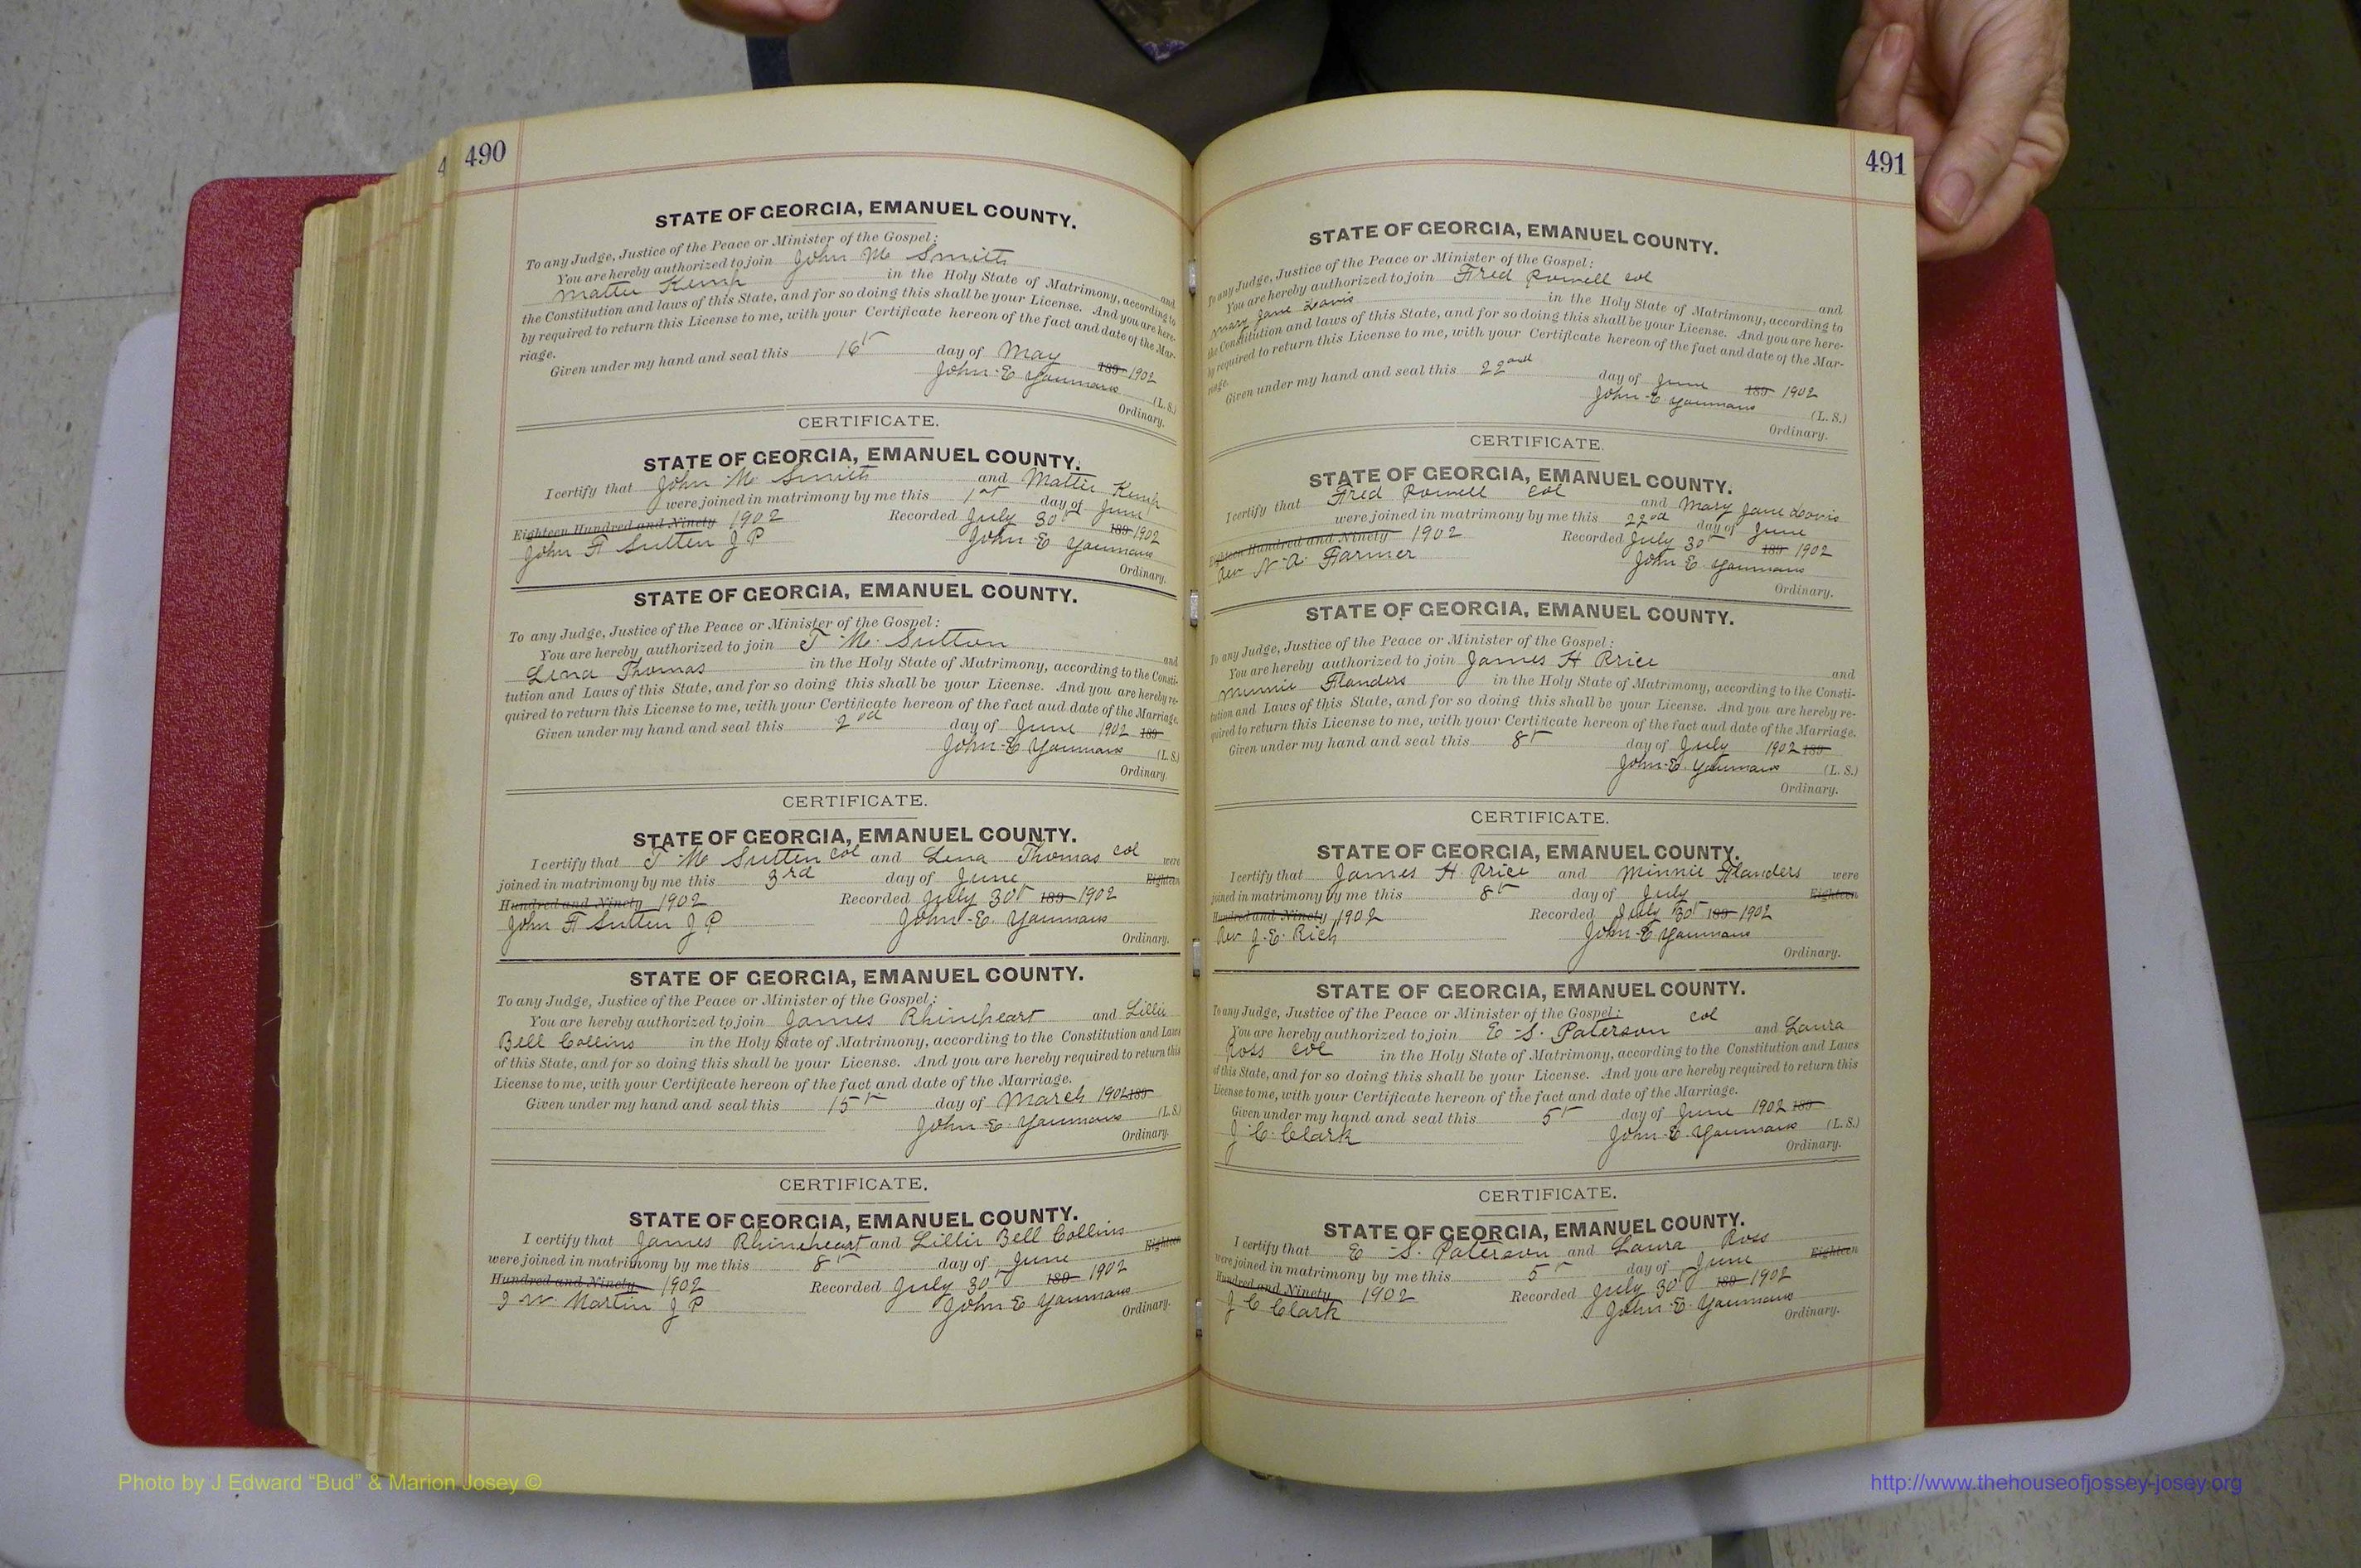 4
490
STATE OF GEORGIA, EMANUEL COUNTY.
To any Judge, Justice of the Peace or Minister of the Gospel:
You are hereby authorized to join John M Smith and
Mattie Kemp in the Holy State of Matrimony, according to
the Constitution and laws of this State, and for so doing this shall be your License. And you are here-
by required to return this License to me, with your Certificate hereon of the fact and date of the Mar-
riage.
Given under my hand and seal this 16th day of May 189 1902
John E Youmans (L. S.)
Ordinary.
CERTIFICATE.
STATE OF GEORGIA, EMANUEL COUNTY.
I certify that John M Smith and Mattie Kemp
were joined in matrimony by me this 1st day of June
Eighteen Hundred and Ninety 1902 Recorded July 30th 189 1902
John F Sutten J P John E Youmans
Ordinary.
STATE OF GEORGIA, EMANUEL COUNTY.
To any Judge, Justice of the Peace or Minister of the Gospel:
You are hereby authorized to join T M. Sutton and
Lena Thomas in the Holy State of Matrimony, according to the Consti-
tution and Laws of this State, and for so doing this shall be your License. And you are hereby re-
quired to return this License to me, with your Certificate hereon of the fact aud date of the Marriage.
Given under my hand and seal this 2nd day of June 1902 189
John E Youmans (L. S.)
Ordinary.
CERTIFICATE.
STATE OF GEORGIA, EMANUEL COUNTY.
I certify that T M Sutten col and Lena Thomas col were
joined in matrimony by me this 3rd day of June Eighteen
Hundred and Ninety 1902 Recorded July 30th 189 1902
John F Sutten J P John E. Youmans
Ordinary.
STATE OF GEORGIA, EMANUEL COUNTY.
To any Judge, Justice of the Peace or Minister of the Gospel:
You are hereby authorized to join James Rhineheart and Lillie
Bell Collins in the Holy State of Matrimony, according to the Constitution and Laws
of this State, and for so doing this shall be your License. And you are hereby required to return this
License to me, with your Certificate hereon of the fact and date of the Marriage.
Given under my hand and seal this 15th day of March 1902 189
John E. Youmans (L. S.)
Ordinary.
CERTIFICATE.
STATE OF GEORGIA, EMANUEL COUNTY.
I certify that James Rhineheart and Lillie Bell Collins
were joined in matrimony by me this 8th day of June Eighteen
Hundred and Ninety 1902 Recorded July 30th 189 1902
W Martin J P John E Youmans
Ordinary.
491
STATE OF GEORGIA, EMANUEL COUNTY.
To any Judge, Justice of the Peace or Minister of the Gospel:
You are hereby authorized to join Fred Powell col and
Mary Jane Davis in the Holy State of Matrimony, according to
the Constitution and laws of this State, and for so doing this shall be your License. And you are here-
by required to return this License to me, with your Certificate hereon of the fact and date of the Mar-
riage.
Given under my hand and seal this 22nd day of June 189 1902
John E Youmans (L. S.)
Ordinary.
CERTIFICATE.
STATE OF GEORGIA, EMANUEL COUNTY.
I certify that Fred Powell col and Mary Jane Davis
were joined in matrimony by me this 22nd day of June
Eighteen Hundred and Ninety 1902 Recorded July 30th 189 1902
Rev N. A. Farmer John E Youmans
Ordinary.
STATE OF GEORGIA, EMANUEL COUNTY.
To any Judge, Justice of the Peace or Minister of the Gospel:
You are hereby authorized to join James H Price and
Minnie Flanders in the Holy State of Matrimony, according to the Consti-
tution and Laws of this State, and for so doing this shall be your License. And you are hereby re-
quired to return this License to me, with your Certificate hereon of the fact aud date of the Marriage.
Given under my hand and seal this 8th day of July 1902 189
John E. Youmans (L. S.)
Ordinary.
CERTIFICATE.
STATE OF GEORGIA, EMANUEL COUNTY.
I certify that James H. Price and Minnie Flanders were
joined in matrimony by me this 8th day of July Eighteen
Hundred and Ninety 1902 Recorded July 30th 189 1902
Rev J. E. Rich John E Youmans
Ordinary.
STATE OF GEORGIA, EMANUEL COUNTY.
To any Judge, Justice of the Peace or Minister of the Gospel:
You are hereby authorized to join E S. Paterson col and Laura
Ross col in the Holy State of Matrimony, according to the Constitution and Laws
of this State, and for so doing this shall be your License. And you are hereby required to return this
License to me, with your Certificate hereon of the fact and date of the Marriage.
Given under my hand and seal this 5th day of June 1902 189
J. C. Clark John E. Youmans (L. S.)
Ordinary.
CERTIFICATE.
STATE OF GEORGIA, EMANUEL COUNTY.
I certify that E S. Paterson and Laura Ross
were joined in matrimony by me this 5th day of June Eighteen
Hundred and Ninety 1902 Recorded July 30th 189 1902
J C Clark John E. Youmans
Ordinary.
Photo by J Edward “Bud” & Marion Josey ©
http://www.thehouseofjossey-josey.org